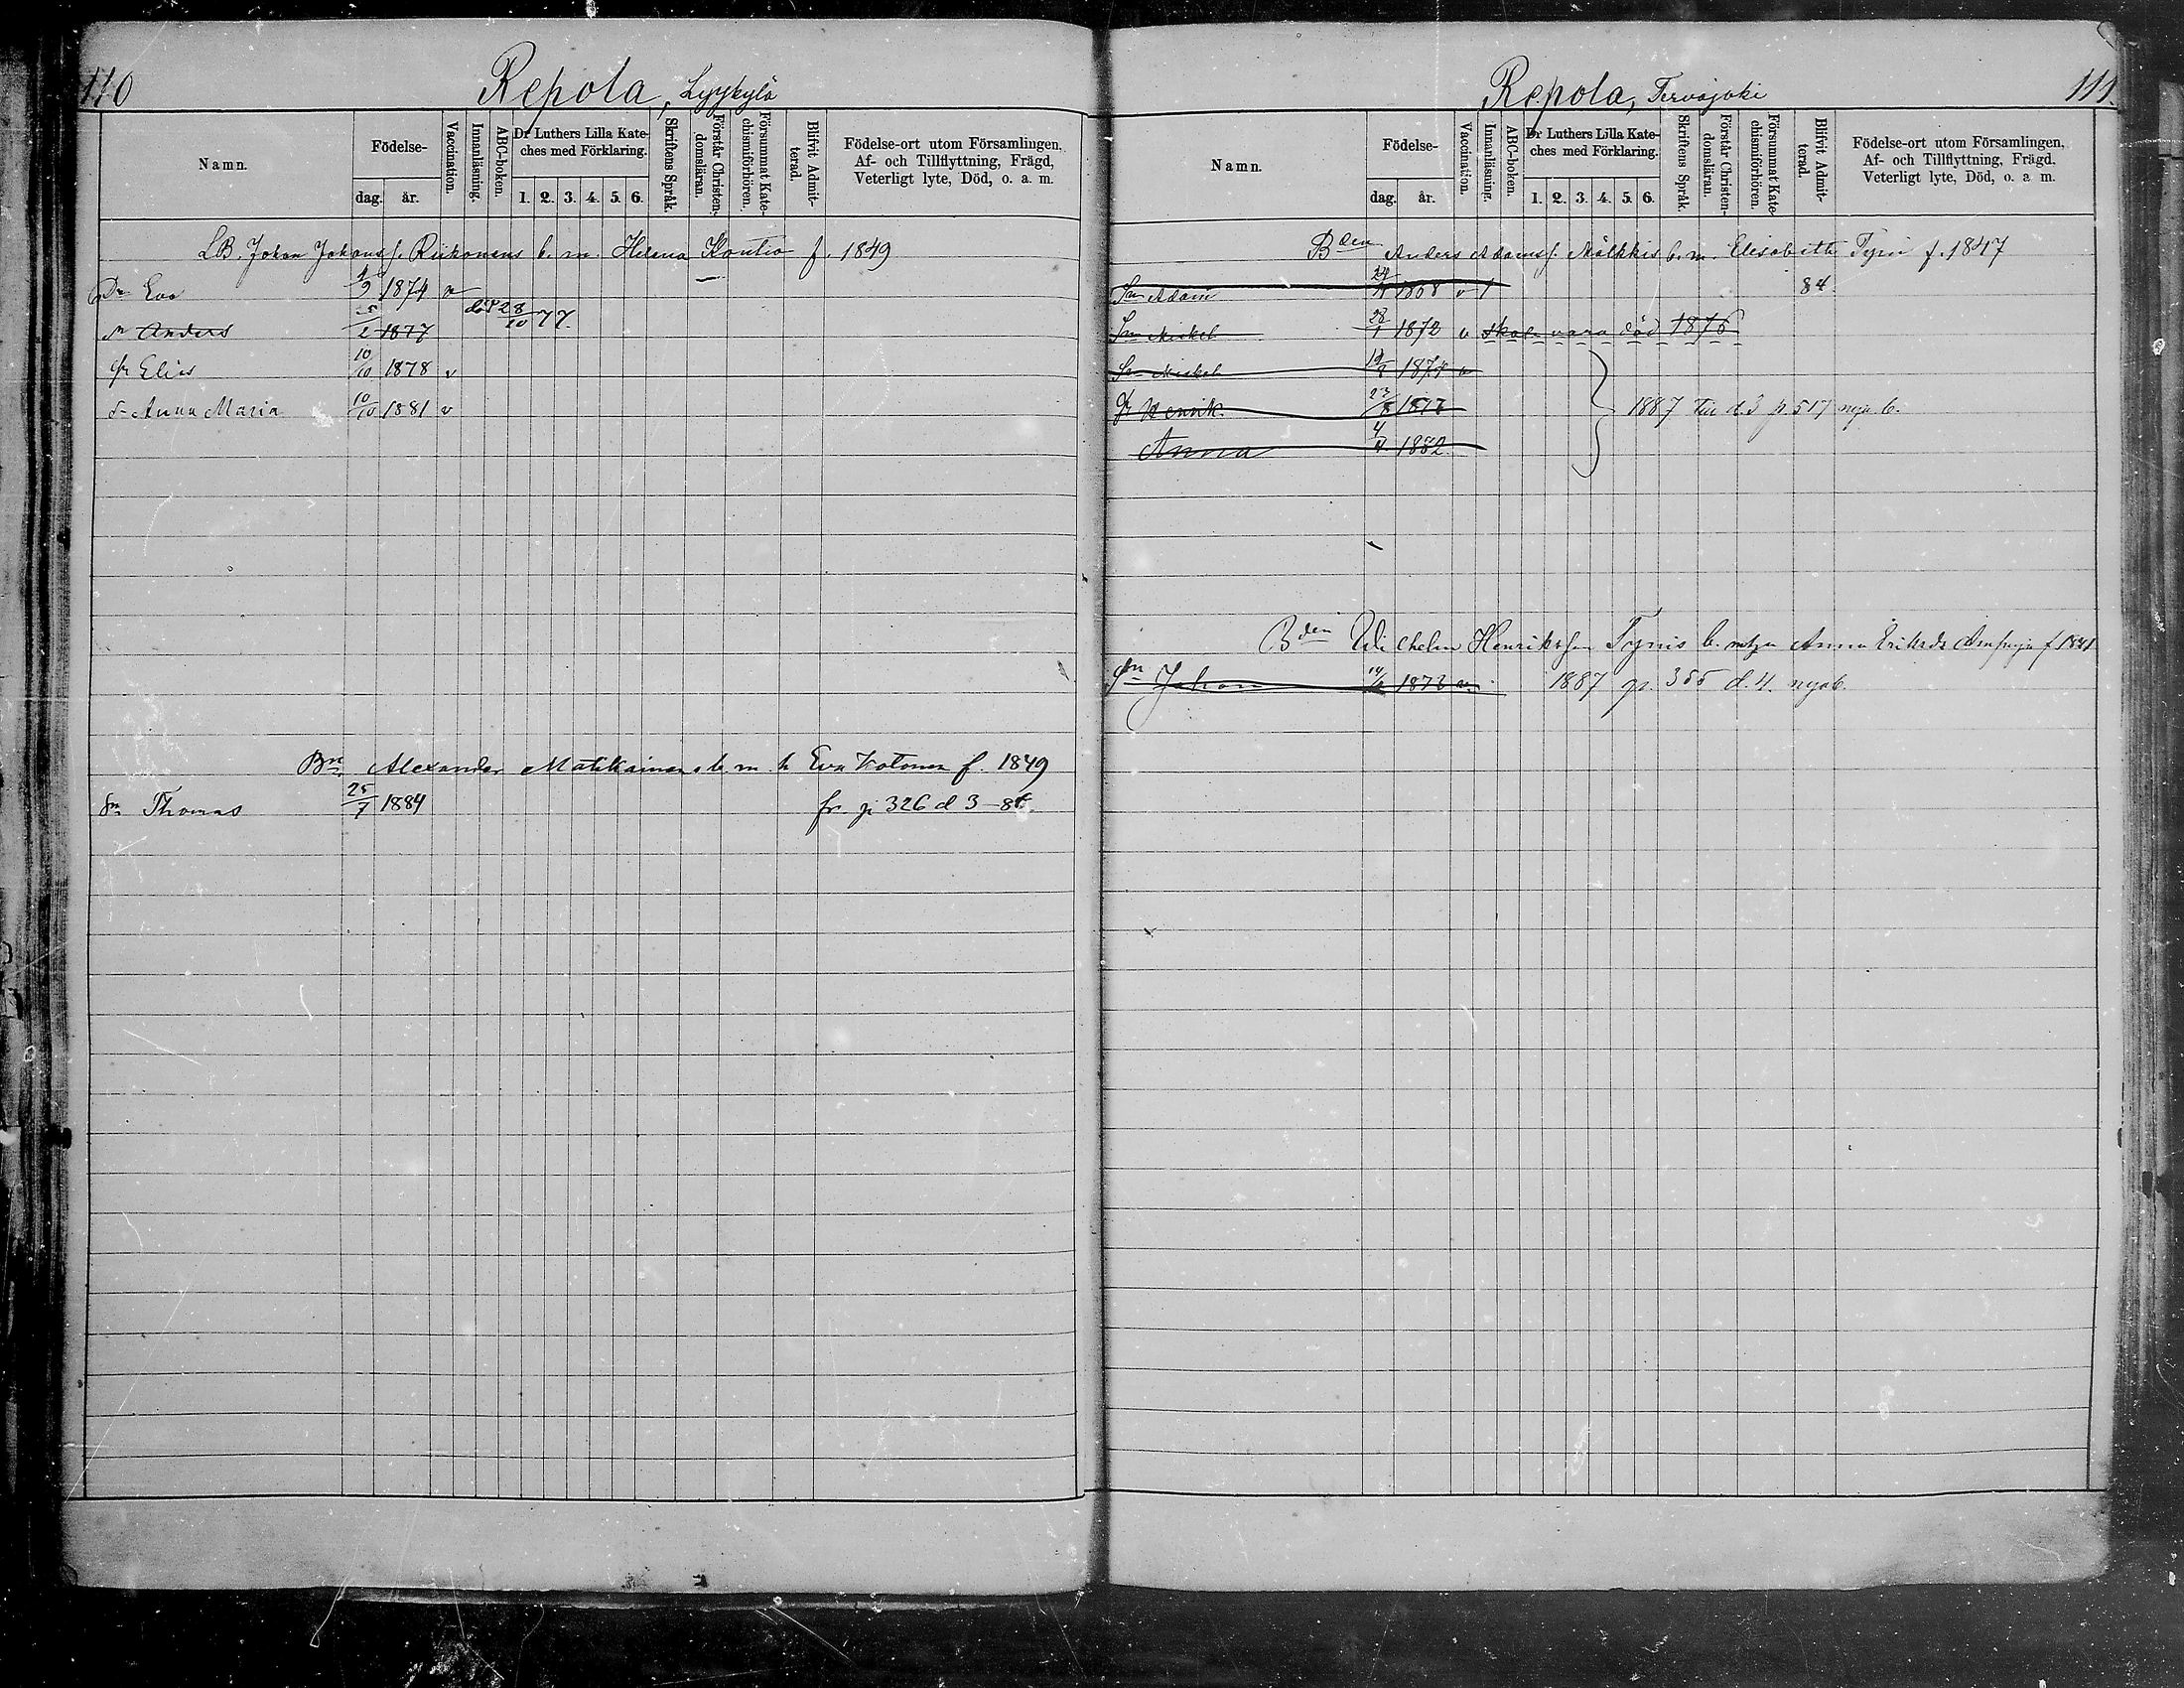 110
Repola, Lyykylä
Namn.
Födelse-
dag. år.
Vaccination.
Innanläsning.
ABC-boken.
Dr Luthers Lilla Kate-
ches med Förklaring.
1. 2. 3. 4. 5. 6.
Skriftens Språk.
Förstår Christen-
domsläran.
Försummat Kate-
chismiförhören.
Blifvit Admit-
terad.
Födelse-ort utom Församlingen,
Af- och Tillflyttning, Frägd,
Veterligt lyte, Död, o. a. m.
LB. Johan Johans s. Riikonens b. m. Helena Kontio f. 1849
Dr Eva 4/9 1874 v
Sn Anders 5/2 1877 död 28/10 77.
Sn Elias 10/10 1878 v
d- Anna Maria 10/10 1881 v
Bn Alexander Matikainens b. m. h Eva Kotonen f. 1849
Sn Thomas 25/7 1884 fr. p 326 d 3 - 8
Repola, Tervajoki
111.
Namn.
Födelse-
dag. år.
Vaccination.
Innanläsning.
ABC-boken.
Dr Luthers Lilla Kate-
ches med Förklaring.
1. 2. 3. 4. 5. 6.
Skriftens Språk.
Förstår Christen-
domsläran.
Försummat Kate-
chismiförhören.
Blifvit Admit-
terad.
Födelse-ort utom Församlingen,
Af- och Tillflyttning, Frägd,
Veterligt lyte, Död, o. a. m.
Bden Anders Adams s. Mälkkis b. m. Elisabeth Tyni f. 1847
Son Adam 1868 v 1 84
Son Mickel 28/1 1872 v skal vara död 1875
Son Mickel 1874 v
Sn Henrik 1877 1887 till d. 3 p. 517 nya b.
Anna 4/4 1882.
Bden Wilhelm Henriksson Tynis b. m. Anna Eriksdr f 1841
Sn Johan 1873 v. 1887 p. 355 d. 4. nya b.